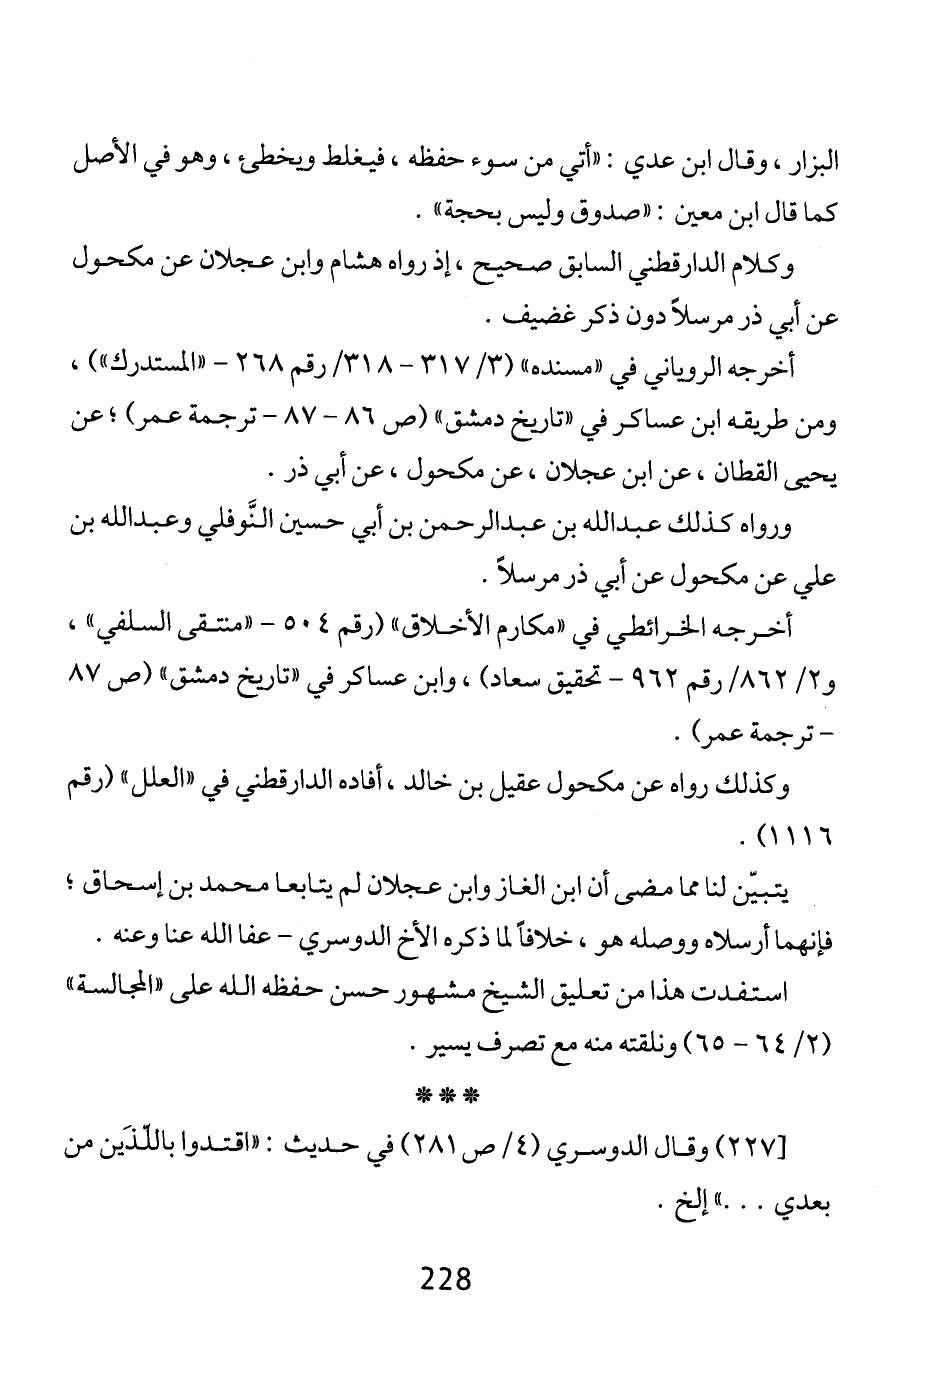 البزار ، وقال ابن عدي : «أتي من سوء حفظه ، فيغلط ويخطئ ، وهو في الأصل
كما قال ابن معين : «صدوق وليس بحجة» .
وكلام الدارقطني السابق صحيح ، إذ رواه هشام وابن عجلان عن مكحول
عن أبي ذر مرسلاً دون ذكر غضيف .
أخرجه الروياني في «مسنده» (٣/ ٣١٧ – ٣١٨/ رقم ٢٦٨ – «المستدرك») ،
ومن طريقه ابن عساكر في «تاريخ دمشق» (ص ٨٦ – ٨٧ – ترجمة عمر) ؛ عن
يحيى القطان ، عن ابن عجلان ، عن مكحول ، عن أبي ذر .
ورواه كذلك عبدالله بن عبدالرحمن بن أبي حسين النَّوفلي وعبدالله بن
علي عن مكحول عن أبي ذر مرسلاً .
أخرجه الخرائطي في «مكارم الأخلاق» (رقم ٥٠٤ – «منتقى السلفي» ،
و٢/ ٨٦٢/ رقم ٩٦٢ – تحقيق سعاد) ، وابن عساكر في «تاريخ دمشق» (ص ٨٧
– ترجمة عمر) .
وكذلك رواه عن مكحول عقيل بن خالد ، أفاده الدارقطني في «العلل» (رقم
١١١٦) .
يتبيّن لنا مما مضى أن ابن الغاز وابن عجلان لم يتابعا محمد بن إسحاق ؛
فإنهما أرسلاه ووصله هو ، خلافاً لما ذكره الأخ الدوسري – عفا الله عنا وعنه .
استفدت هذا من تعليق الشيخ مشهور حسن حفظه الله على «المجالسة»
(٢/ ٦٤ – ٦٥) ونلقته منه مع تصرف يسير .
***
[٢٢٧) وقال الدوسري (٤/ ص ٢٨١) في حديث : «اقتدوا باللّذَين من
بعدي . . .» إلخ .
228